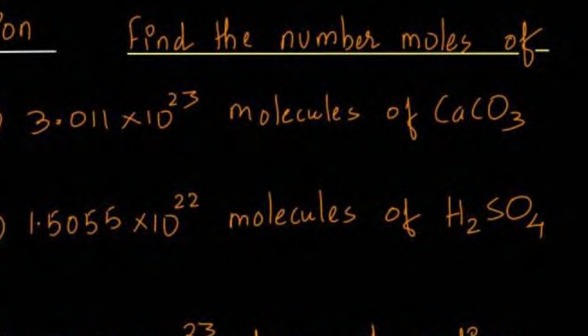 on Find the number moles of
) 3.011 ×10²³ molecules of CaCO₃
) 1.5055 ×10²² molecules of H₂SO₄
23